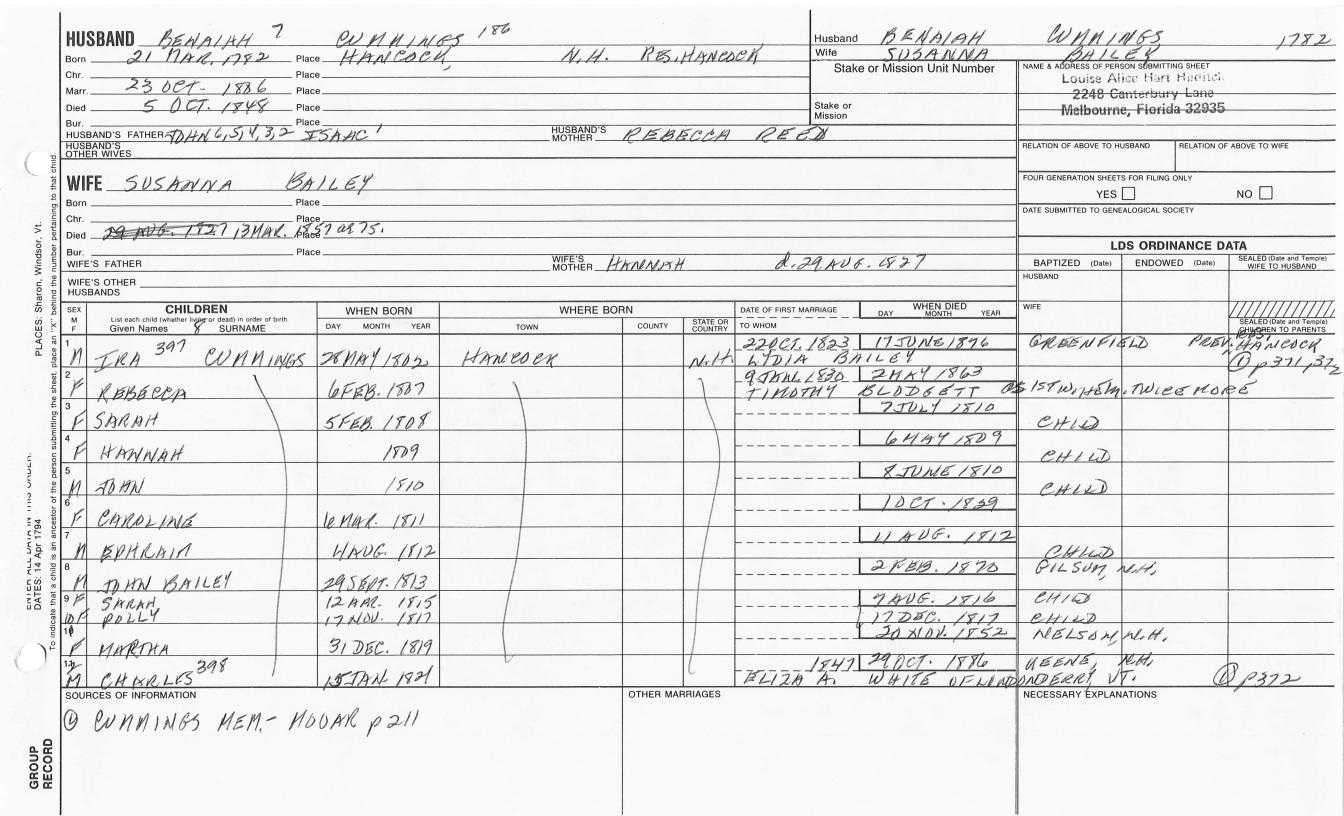 HUSBAND BENAIAH 7 CUMMINGS 186
Born 21 MAR. 1782 Place HANCOCK, N.H. RES. HANCOCK
Chr. Place
Marr. 23 OCT. 1886 Place
Died 5 OCT. 1848 Place
Bur. Place
HUSBAND'S FATHER JOHN 6,5,4,3,2 ISAAC 1 HUSBAND'S MOTHER REBECCA REED
HUSBAND'S OTHER WIVES
Husband BENAIAH CUMMINGS 1782
Wife SUSANNA BAILEY
Stake or Mission Unit Number
Stake or Mission
NAME & ADDRESS OF PERSON SUBMITTING SHEET
Louise Alice Hart
2248 Canterbury Lane
Melbourne, Florida 32935
RELATION OF ABOVE TO HUSBAND RELATION OF ABOVE TO WIFE
FOUR GENERATION SHEETS FOR FILING ONLY
YES NO
DATE SUBMITTED TO GENEALOGICAL SOCIETY
WIFE SUSANNA BAILEY
Born Place
Chr. Place
Died 29 AUG. 1827 13 MAR. 1857 at 75. Place
Bur. Place
WIFE'S FATHER WIFE'S MOTHER HANNAH d. 29 AUG. 1827
WIFE'S OTHER HUSBANDS
LDS ORDINANCE DATA
BAPTIZED (Date) ENDOWED (Date) SEALED (Date and Temple) WIFE TO HUSBAND
HUSBAND
WIFE
SEALED (Date and Temple) CHILDREN TO PARENTS
SEX M F
CHILDREN
List each child (whether living or dead) in order of birth
Given Names 8 SURNAME
WHEN BORN
DAY MONTH YEAR
WHERE BORN
TOWN COUNTY STATE OR COUNTRY
DATE OF FIRST MARRIAGE
TO WHOM
WHEN DIED
DAY MONTH YEAR
1 M IRA 397 CUMMINGS 28 MAY 1802 HANCOCK N.H. 22 OCT. 1823 17 JUNE 1876 GREENFIELD PREV. RES. HANCOCK
LYDIA BAILEY ① p371, 372
2 F REBECCA 6 FEB. 1807 9 JAN. 1830 2 MAY 1863
TIMOTHY BLODGETT AS 1ST W., HE M. TWICE MORE
3 F SARAH 5 FEB. 1808 7 JULY 1810 CHILD
4 F HANNAH 1809 6 MAY 1809 CHILD
5 M JOHN 1810 8 JUNE 1810 CHILD
6 F CAROLINE 6 MAR. 1811 1 OCT. 1839
7 M EPHRAIM 4 AUG. 1812 11 AUG. 1812 CHILD
8 M JOHN BAILEY 29 SEPT. 1813 2 FEB. 1870 GILSUM, N.H.
9 F SARAH 12 APR. 1815 7 AUG. 1816 CHILD
10 F POLLY 17 NOV. 1817 17 DEC. 1817 CHILD
11 F MARTHA 31 DEC. 1819 20 NOV. 1852 NELSON, N.H.
12 M CHARLES 398 15 JAN. 1821 1847 29 OCT. 1886 KEENE, N.H.
ELIZA A. WHITE OF LONDONDERRY VT. ① p372
SOURCES OF INFORMATION
① CUMMINGS MEM. - MOOAR p 211
OTHER MARRIAGES
NECESSARY EXPLANATIONS
PLACES: Sharon, Windsor, Vt.
ENTER ALL DATA IN THIS ORDER:
DATES: 14 Apr 1794
To indicate that a child is an ancestor of the person submitting the sheet, place an "X" behind the number pertaining to that child.
GROUP RECORD